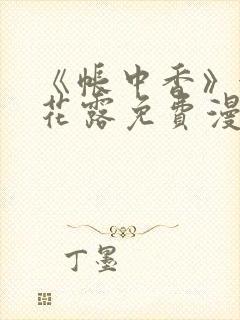 《帐中香》
花露免费漫
丁墨